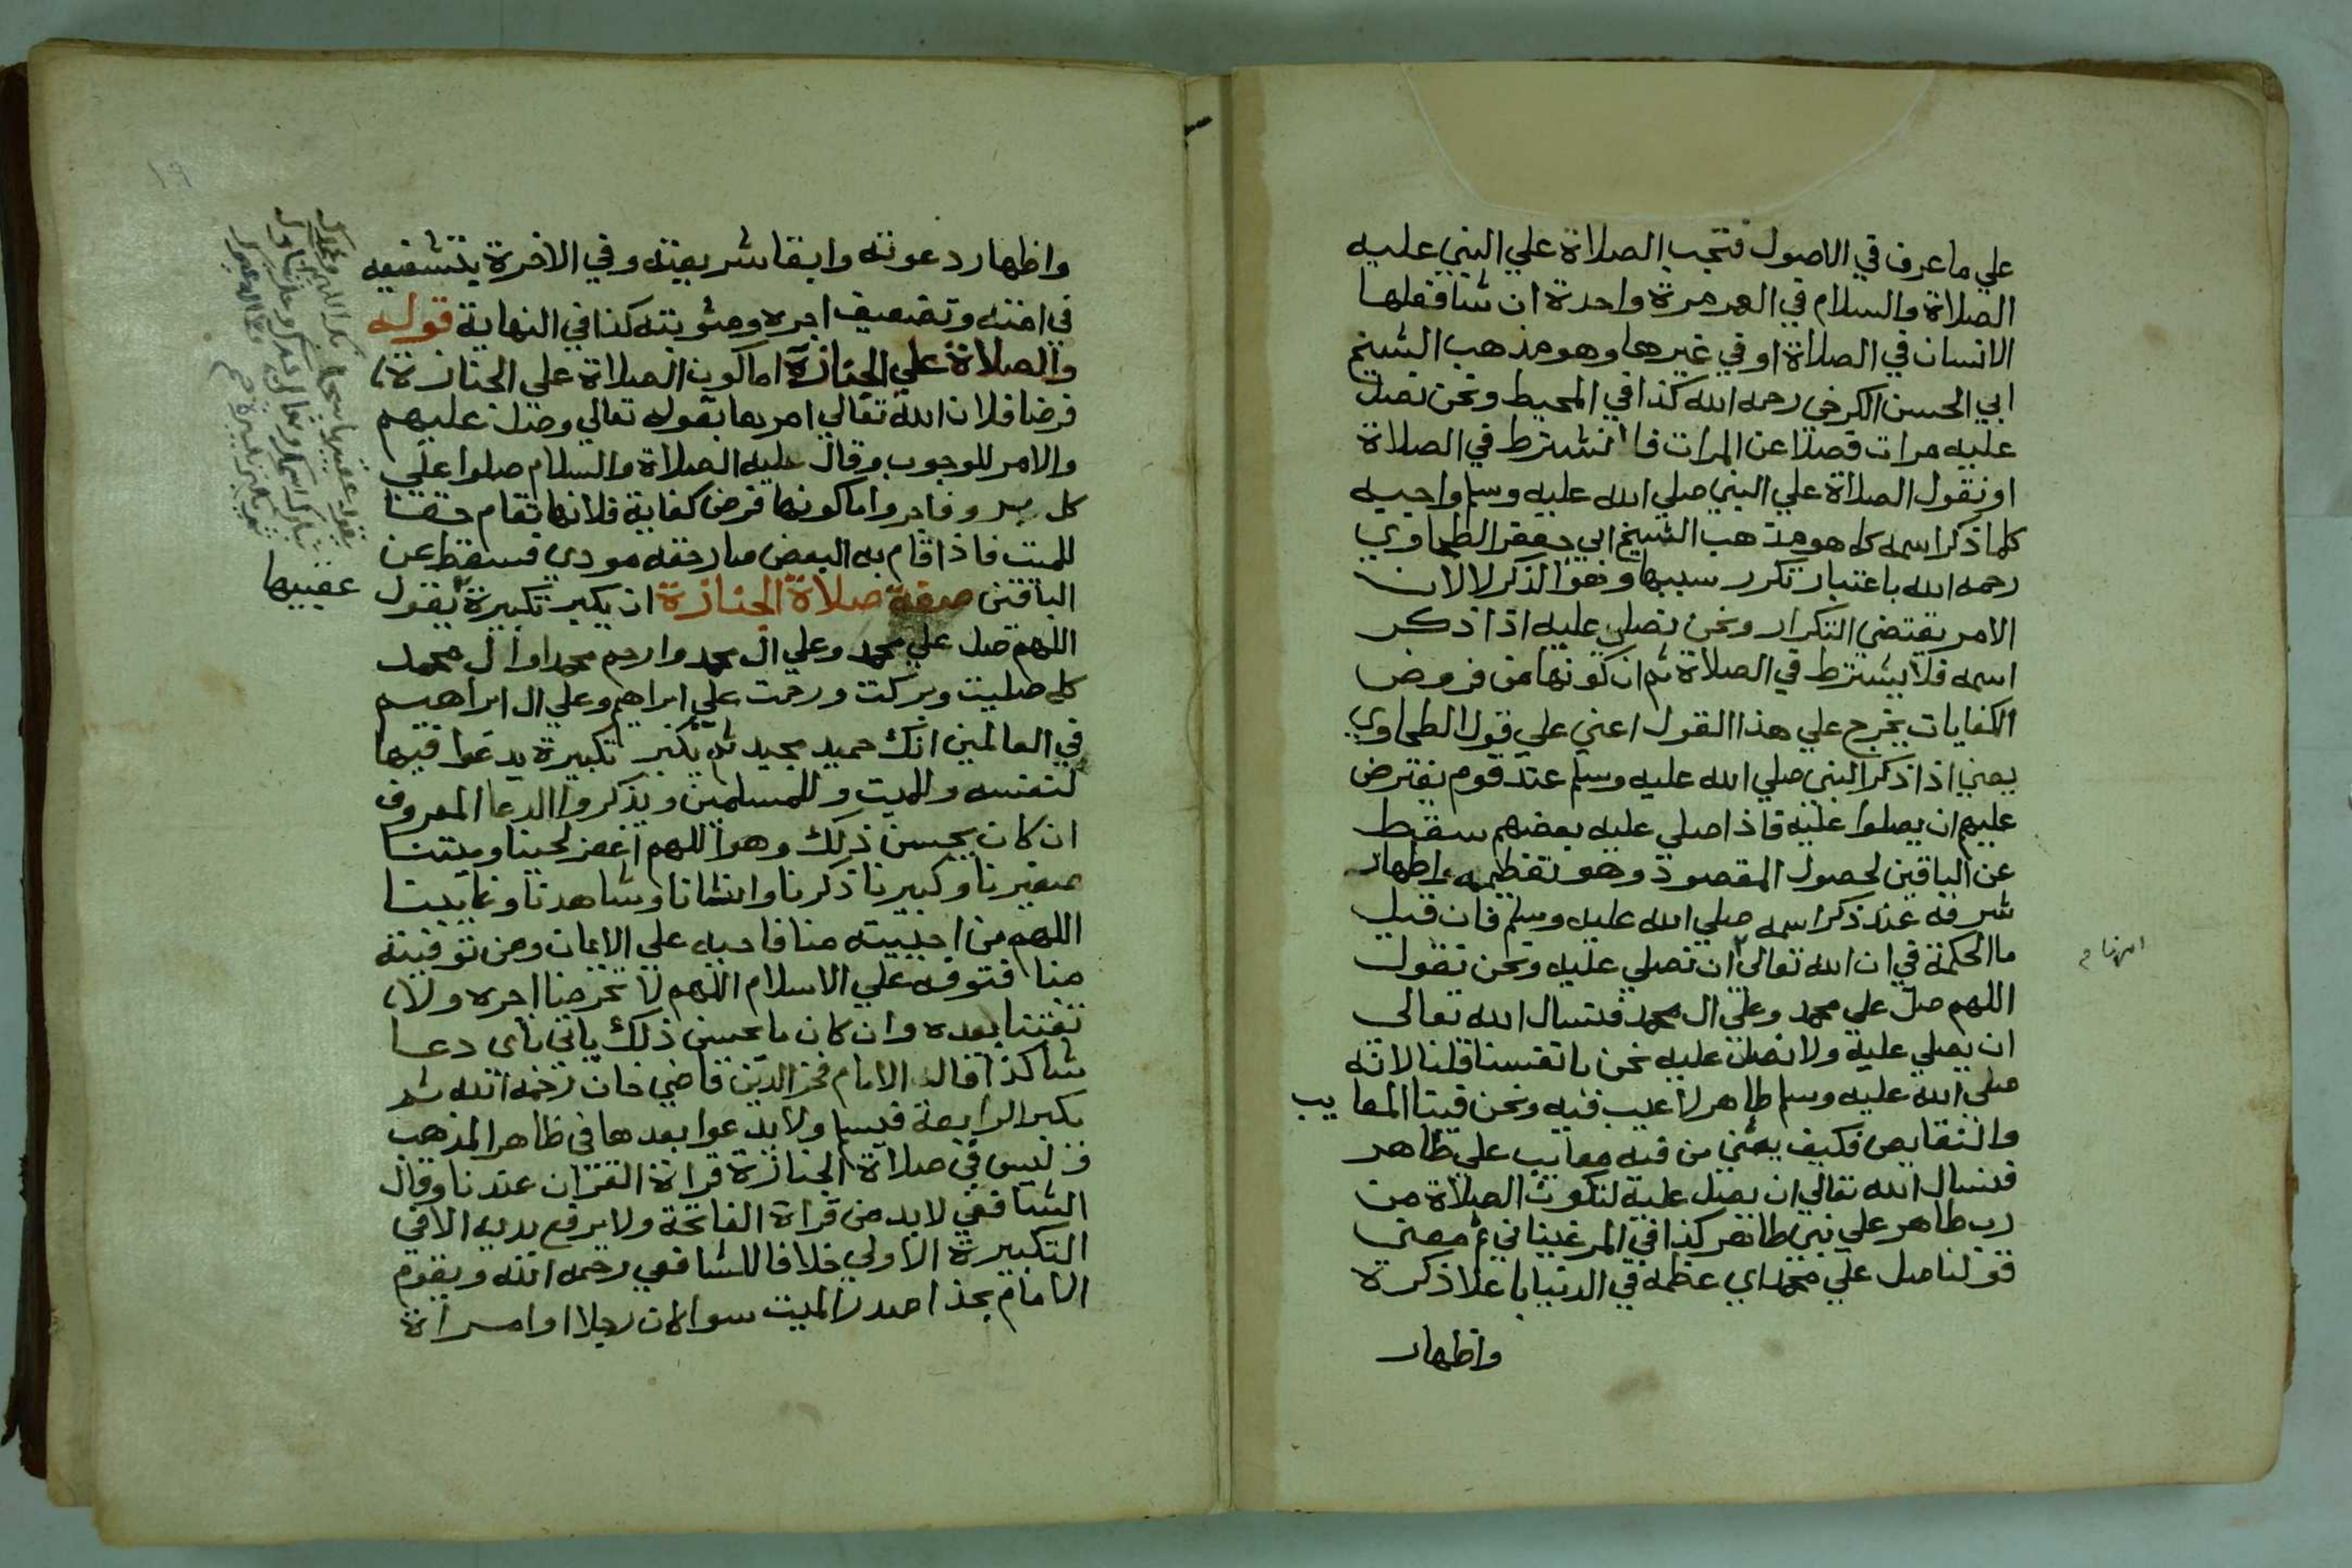 علي ما عرف في الاصول فتجب الصلاة علي النبي عليه
الصلاة والسلام في العمر مرة واحدة ان شا فعلها
الانسان في الصلاة او في غيرها وهو مذهب الشيخ
ابي الحسن الكرخي رحمه الله كذا في المحيط ونحن نصل
عليه مرات فضلا عن المرات فلا تشترط في الصلاة
او نقول الصلاة علي النبي صلي الله عليه وسلم واجبه
كلما ذكر اسمه كما هو مذهب الشيخ ابي جعفر الطحاوي
رحمه الله باعتبار تكرر سببها وهو الذكر لا لان
الامر يقتضي التكرار ونحن نصلي عليه اذا ذكر
اسمه فلا يشترط في الصلاة ثم ان كونها من فروض
الكفايات يخرج علي هذا القول اعني علي قول الطحاوي
يعني اذا ذكر النبي صلي الله عليه وسلم عند قوم يفترض
عليهم ان يصلوا عليه فاذا صلي عليه بعضهم سقط
عن الباقين لحصول المقصود وهو تعظيمه واظهار
شرفه عند ذكر اسمه صلي الله عليه وسلم فان قيل
ما الحكمة في ان الله تعالى ان نصلي عليه ونحن نقول
امرنا
اللهم صل علي محمد وعلي ال محمد فنسال الله تعالى
ان يصلي عليه ولا نصل عليه نحن بانفسنا قلنا لانه
صلي الله عليه وسلم طاهر لا عيب فيه ونحن فينا المعايب
والنقايص فكيف يثني من فيه معايب علي طاهر
فنسال الله تعالي ان يصل عليه لتكون الصلاة من
رب طاهر علي نبي طاهر كذا في المرغيناني ثم معنى
قولنا صل علي محمد اي عظمه في الدنيا باعلا ذكره
واظهار
واظهار دعوته وابقا شريعته وفي الاخرة بتشفيعه
في امته وتضعيف اجره ومثوبته كذا في النهاية قوله
والصلاة علي الجنازة اما كون الصلاة علي الجنازة
فرضا فلان الله تعالي امر بها بقوله تعالي وصل عليهم
والامر للوجوب وقال عليه الصلاة والسلام صلوا علي
كل بر وفاجر واما كونها فرض كفاية فلانها تقام حقا
للميت فاذا قام به البعض صار حقه مودي فسقط عن
الباقين صفة صلاة الجنازة ان يكبر تكبيرة يقول
عقيبها
اللهم صل علي محمد وعلي ال محمد وارحم محمدا وال محمد
كما صليت وبركت ورحمت علي ابراهيم وعلي ال ابراهيم
في العالمين انك حميد مجيد ثم يكبر تكبيرة يدعوا فيها
لنفسه وللميت وللمسلمين ويذكروا الدعا المعروف
ان كان يحسن ذلك وهو اللهم اغفر لحينا وميتنا
صغيرنا وكبيرنا ذكرنا وانثانا وشاهدنا وغايبنا
اللهم من احييته منا فاحيه علي الايمان ومن توفيته
منا فتوفه علي الاسلام اللهم لا تحرمنا اجره ولا
تفتنا بعده وان كان ما يحسن ذلك ياتي باى دعا
شا كذا قال الامام فخر الدين قاضي خان رحمه الله ثم
يكبر الرابعة فيسلم ولا يدعوا بعدها في ظاهر المذهب
وليس في صلاة الجنازة قراة القران عندنا وقال
الشافعي لا بد من قراة الفاتحة ولا يرفع يديه الا في
التكبيرة الاولي خلافا للشافعي رحمه الله ويقوم
الامام بحذا صدر الميت سوا كان رجلا او امراة